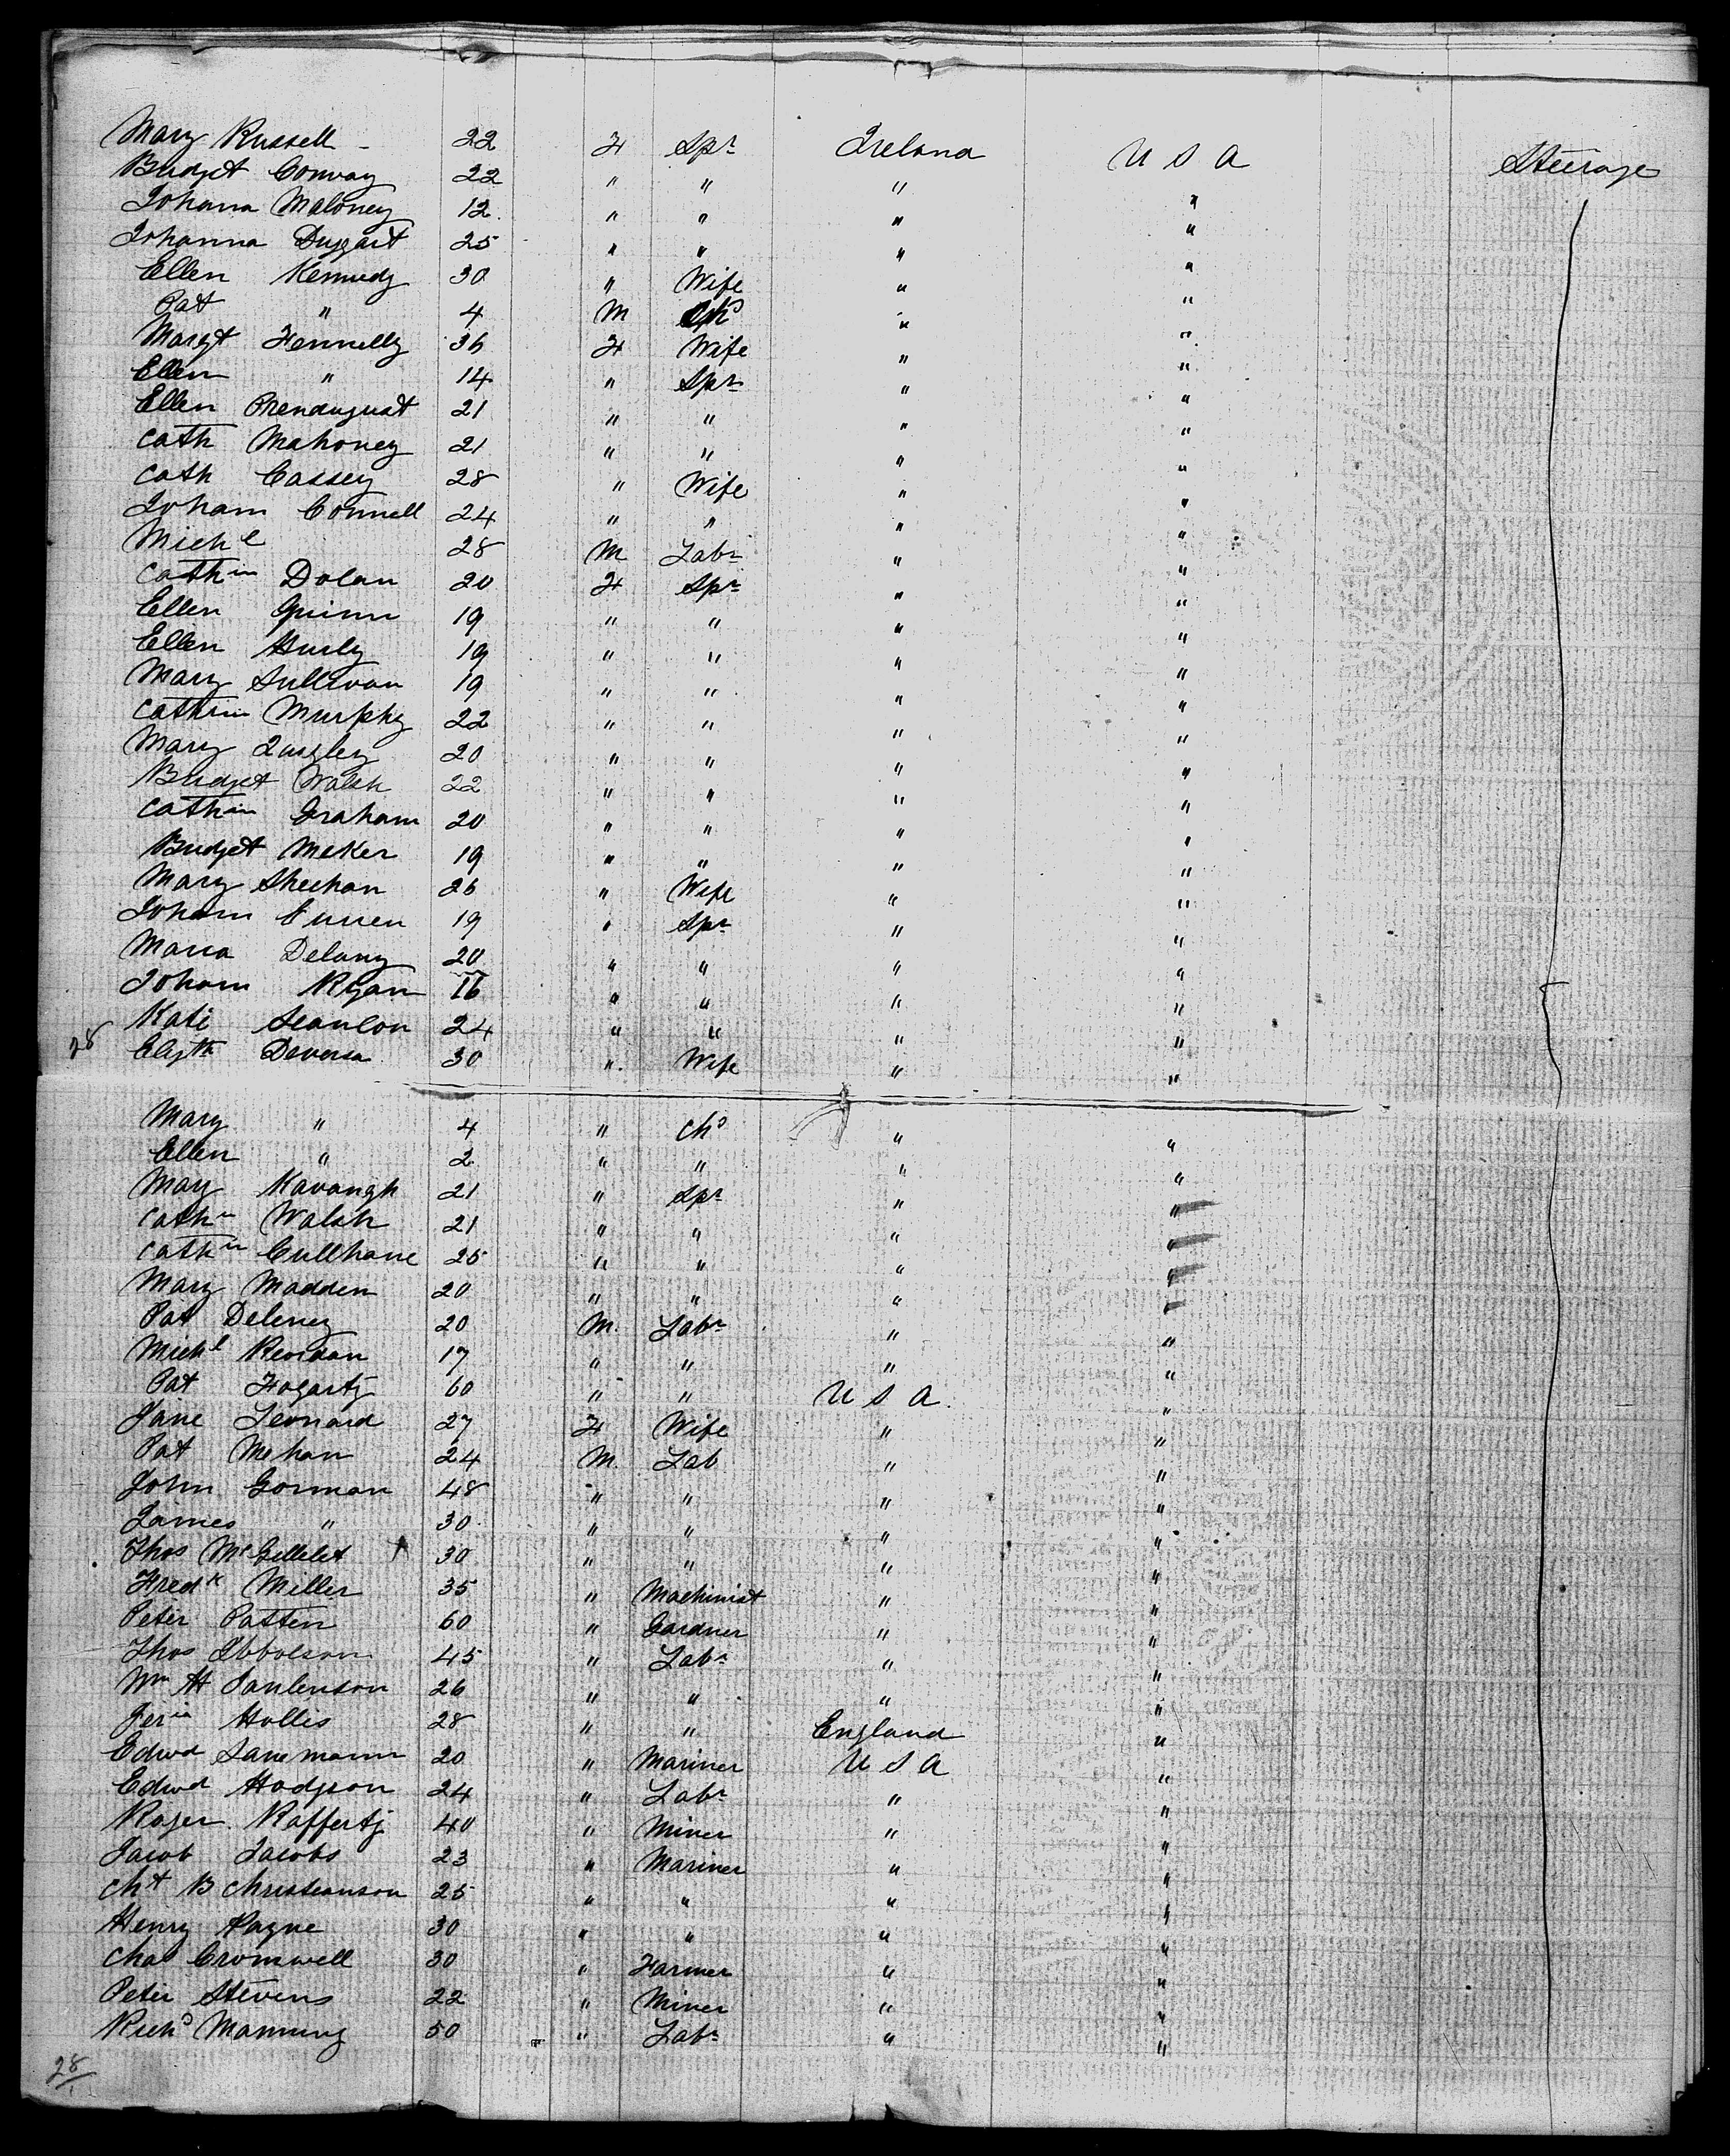 Mary Russell - 22 F Spr Ireland U S A Steerage
Bridget Conway 22 " " " "
Johana Maloney 12 " " " "
Johanna Duggart 25 " " " "
Ellen Kennedy 30 " Wife " "
Pat " 4 M Chd " "
Margt Fennelly 36 F Wife " "
Ellen " 14 " Spr " "
Ellen Prendugust 21 " " " "
Cath Mahoney 21 " " " "
Cath Cassey 28 " Wife " "
Joham Connell 24 " " " "
Michl 28 M Labr " "
Cathin Dolan 20 F Spr " "
Ellen Quinn 19 " " " "
Ellen Hurly 19 " " " "
Mary Sullivan 19 " " " "
Cathrin Murphy 22 " " " "
Mary Quigley 20 " " " "
Bridget Walsh 22 " " " "
Cathin Graham 20 " " " "
Bridget Meker 19 " " " "
Mary Sheehan 26 " Wife " "
Joham Curren 19 " Spr " "
Maria Delany 20 " " " "
Joham Ryan 16 " " " "
Kate Scanlon 24 " " " "
28 Elizth Deversa 30 " Wife " "
Mary " 4 " Chd " "
Ellen " 2 " " " "
Mary Kavangh 21 " Spr " "
Cathn Walsh 21 " " " "
Cathn Cullhane 25 " " " "
Mary Madden 20 " " " "
Pat Deleney 20 M. Labr " "
Michl Reordan 17 " " " "
Pat Fogarty 60 " " U S A. "
Jane Leonard 27 F Wife " "
Pat Mehan 24 M. Lab " "
John Gorman 48 " " " "
James " 30 " " " "
Thos McGellelet 30 " " " "
Fredk Miller 35 " Machinist " "
Peter Patten 60 " Gardner " "
Thos Ibbolson 45 " Labr " "
Wm H Panlenson 26 " " " "
Jeria Hollis 28 " " England "
Edwd Lanemann 20 " Mariner U S A "
Edwd Hodgson 24 " Labr " "
Roger Rafferty 40 " Miner " "
Jacob Jacobs 23 " Mariner " "
Cht B Christianson 25 " " " "
Henry Payne 30 " " " "
Chas Cromwell 30 " Farmer " "
Peter Stevens 22 " Miner " "
Richd Manning 50 " Labr " "
28